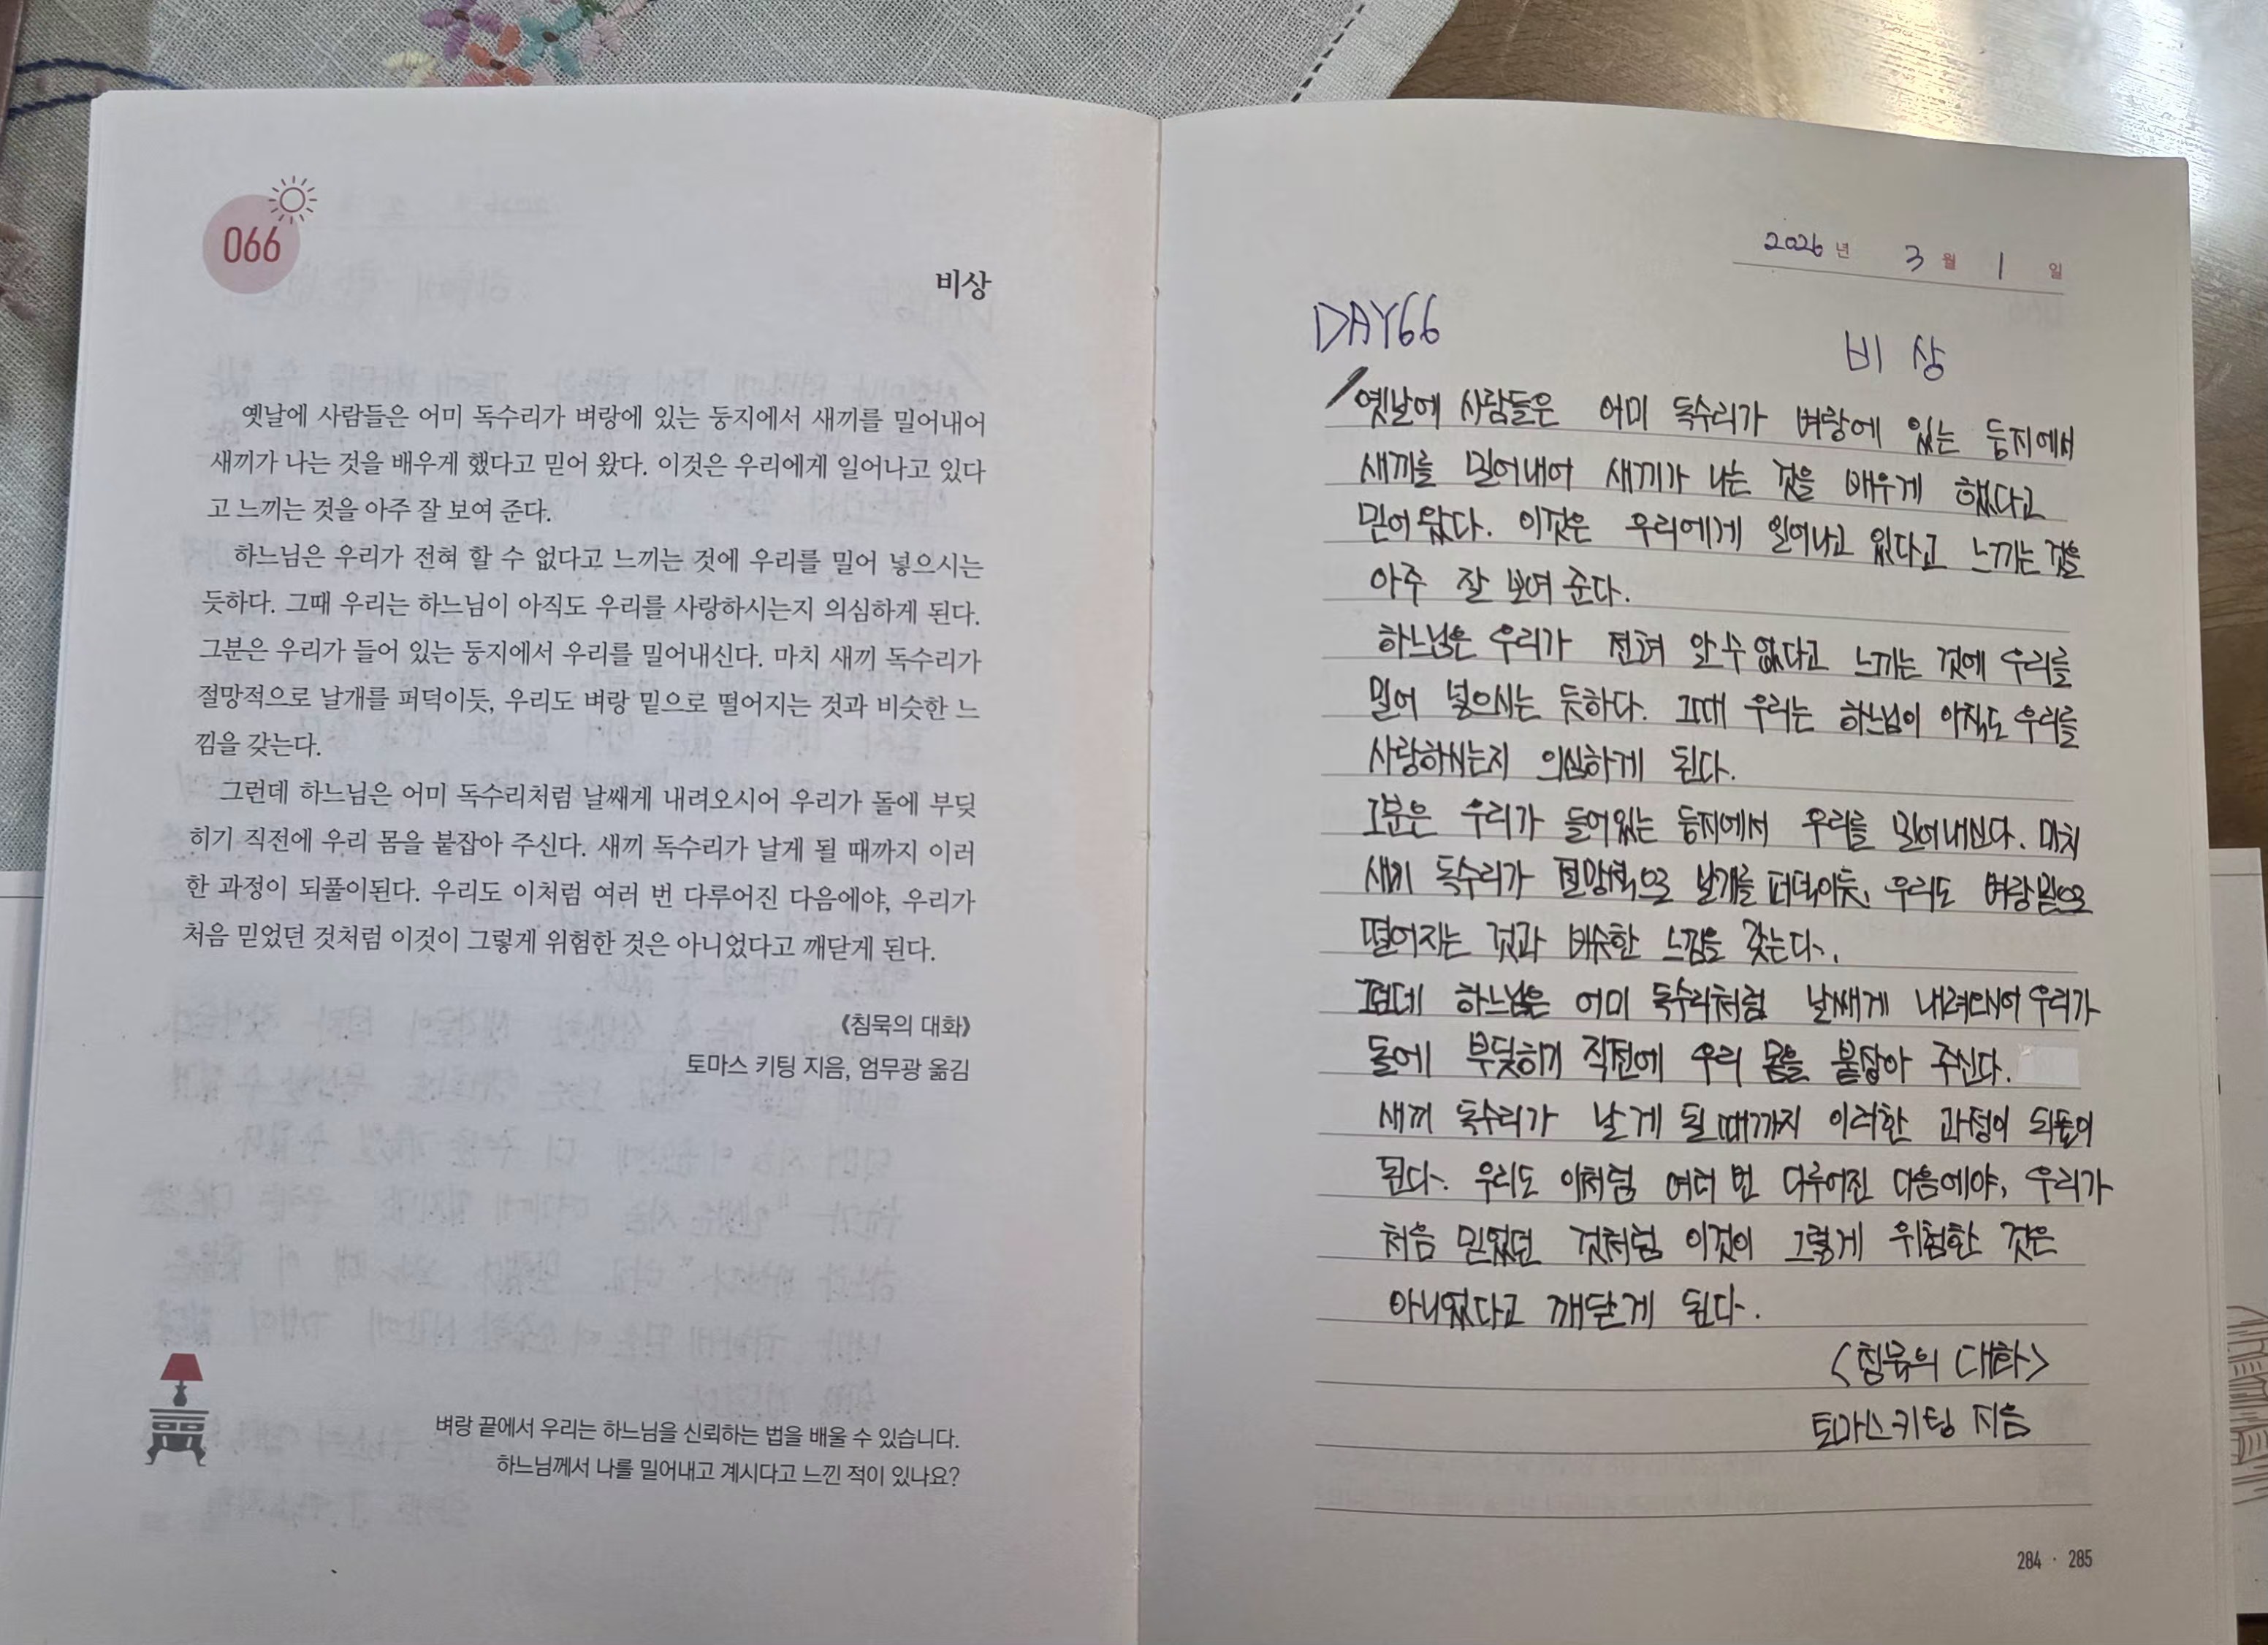 066
비상
옛날에 사람들은 어미 독수리가 벼랑에 있는 둥지에서 새끼를 밀어내어
새끼가 나는 것을 배우게 했다고 믿어 왔다. 이것은 우리에게 일어나고 있다
고 느끼는 것을 아주 잘 보여 준다.
하느님은 우리가 전혀 할 수 없다고 느끼는 것에 우리를 밀어 넣으시는
듯하다. 그때 우리는 하느님이 아직도 우리를 사랑하시는지 의심하게 된다.
그분은 우리가 들어 있는 둥지에서 우리를 밀어내신다. 마치 새끼 독수리가
절망적으로 날개를 퍼덕이듯, 우리도 벼랑 밑으로 떨어지는 것과 비슷한 느
낌을 갖는다.
그런데 하느님은 어미 독수리처럼 날쌔게 내려오시어 우리가 돌에 부딪
히기 직전에 우리 몸을 붙잡아 주신다. 새끼 독수리가 날게 될 때까지 이러
한 과정이 되풀이된다. 우리도 이처럼 여러 번 다루어진 다음에야, 우리가
처음 믿었던 것처럼 이것이 그렇게 위험한 것은 아니었다고 깨닫게 된다.
《침묵의 대화》
토마스 키팅 지음, 엄무광 옮김
벼랑 끝에서 우리는 하느님을 신뢰하는 법을 배울 수 있습니다.
하느님께서 나를 밀어내고 계시다고 느낀 적이 있나요?
2026 년 3 월 1 일
DAY66
비상
옛날에 사람들은 어미 독수리가 벼랑에 있는 둥지에서
새끼를 밀어내어 새끼가 나는 것을 배우게 했다고
믿어 왔다. 이것은 우리에게 일어나고 있다고 느끼는 것을
아주 잘 보여 준다.
하느님은 우리가 전혀 할 수 없다고 느끼는 것에 우리를
밀어 넣으시는 듯하다. 그때 우리는 하느님이 아직도 우리를
사랑하시는지 의심하게 된다.
그분은 우리가 들어있는 둥지에서 우리를 밀어내신다. 마치
새끼 독수리가 절망적으로 날개를 퍼덕이듯, 우리도 벼랑 밑으로
떨어지는 것과 비슷한 느낌을 갖는다.
그런데 하느님은 어미 독수리처럼 날쌔게 내려오시어 우리가
돌에 부딪히기 직전에 우리 몸을 붙잡아 주신다.
새끼 독수리가 날게 될 때까지 이러한 과정이 되풀이
된다. 우리도 이처럼 여러 번 다루어진 다음에야, 우리가
처음 믿었던 것처럼 이것이 그렇게 위험한 것은
아니었다고 깨닫게 된다.
<침묵의 대화>
토마스키팅 지음
284 · 285